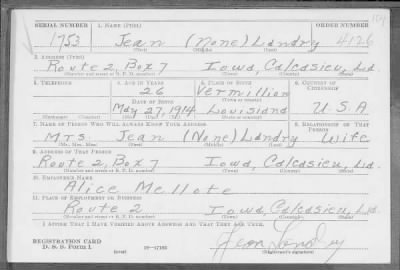 SERIAL NUMBER 1. NAME (Print) ORDER NUMBER
1753 Jean (None) Landry 4126
(First) (Middle) (Last)
2. ADDRESS (Print)
Route 2, Box 7 Iowa, Calcasieu, La.
(Number and street or R. F. D. number) (Town) (County) (State)
3. TELEPHONE 4. AGE IN YEARS 5. PLACE OF BIRTH 6. COUNTRY OF CITIZENSHIP
26 Vermillion
DATE OF BIRTH
May 27, 1914 Louisiana U.S.A.
(Exchange) (Number) (Mo.) (Day) (Yr.) (State or country)
7. NAME OF PERSON WHO WILL ALWAYS KNOW YOUR ADDRESS 8. RELATIONSHIP OF THAT PERSON
Mrs. Jean (None) Landry Wife
(Mr., Mrs., Miss) (First) (Middle) (Last)
9. ADDRESS OF THAT PERSON
Route 2, Box 7 Iowa, Calcasieu, La.
(Number and street or R. F. D. number) (Town) (County) (State)
10. EMPLOYER'S NAME
Alice Mellote
11. PLACE OF EMPLOYMENT OR BUSINESS
Route 2 Iowa, Calcasieu, La.
(Number and street or R. F. D. number) (Town) (County) (State)
I AFFIRM THAT I HAVE VERIFIED ABOVE ANSWERS AND THAT THEY ARE TRUE.
REGISTRATION CARD
D. S. S. Form 1 (over) 16-17105 Jean Landry
(Registrant's signature)